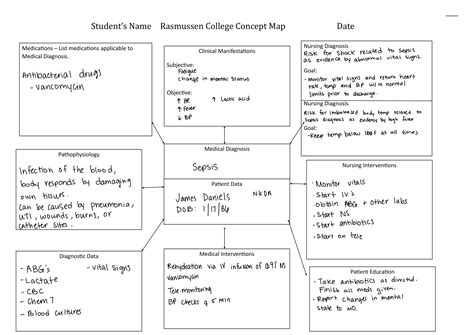 Student's Name    Rasmussen College Concept Map    Date
Medications – List medications applicable to
Medical Diagnosis.
Antibacterial drugs
- vancomycin
Clinical Manifestations
Subjective:
Fatigue
change in mental status
Objective:
↑ HR    ↑ Lactic acid
↑ Fever
↓ BP
Nursing Diagnosis
Risk for shock related to sepsis
as evidence by abnormal vital signs.
Goal:
- Monitor vital signs and return heart
rate, temp and BP w/in normal
limits prior to discharge.
Nursing Diagnosis
Risk for imbalanced body temp related to
sepsis diagnosis as evidence by high fever
Goal:
- Keep temp below 100°F at all times
Pathophysiology
Infection of the blood,
body responds by damaging
own tissues.
Can be caused by pneumonia,
UTI, wounds, burns, or
catheter sites.
Medical Diagnosis
Sepsis
Patient Data
James Daniels    NKDA
DOB: 1/17/86
Nursing Interventions
· Monitor vitals
· Start IV's
· Obtain ABG + other labs
· Start NS
· Start antibiotics
· Start on tele
Diagnostic Data
- ABG's    - vital signs
- Lactate
- CBC
- Chem 7
- Blood cultures
Medical Interventions
Rehydration via IV infusion of 0.9% NS
Vancomycin
Tele-monitoring
BP checks q 5 min
Patient Education
- Take antibiotics as directed.
Finish all meds given.
- Report changes in mental
state to MD.